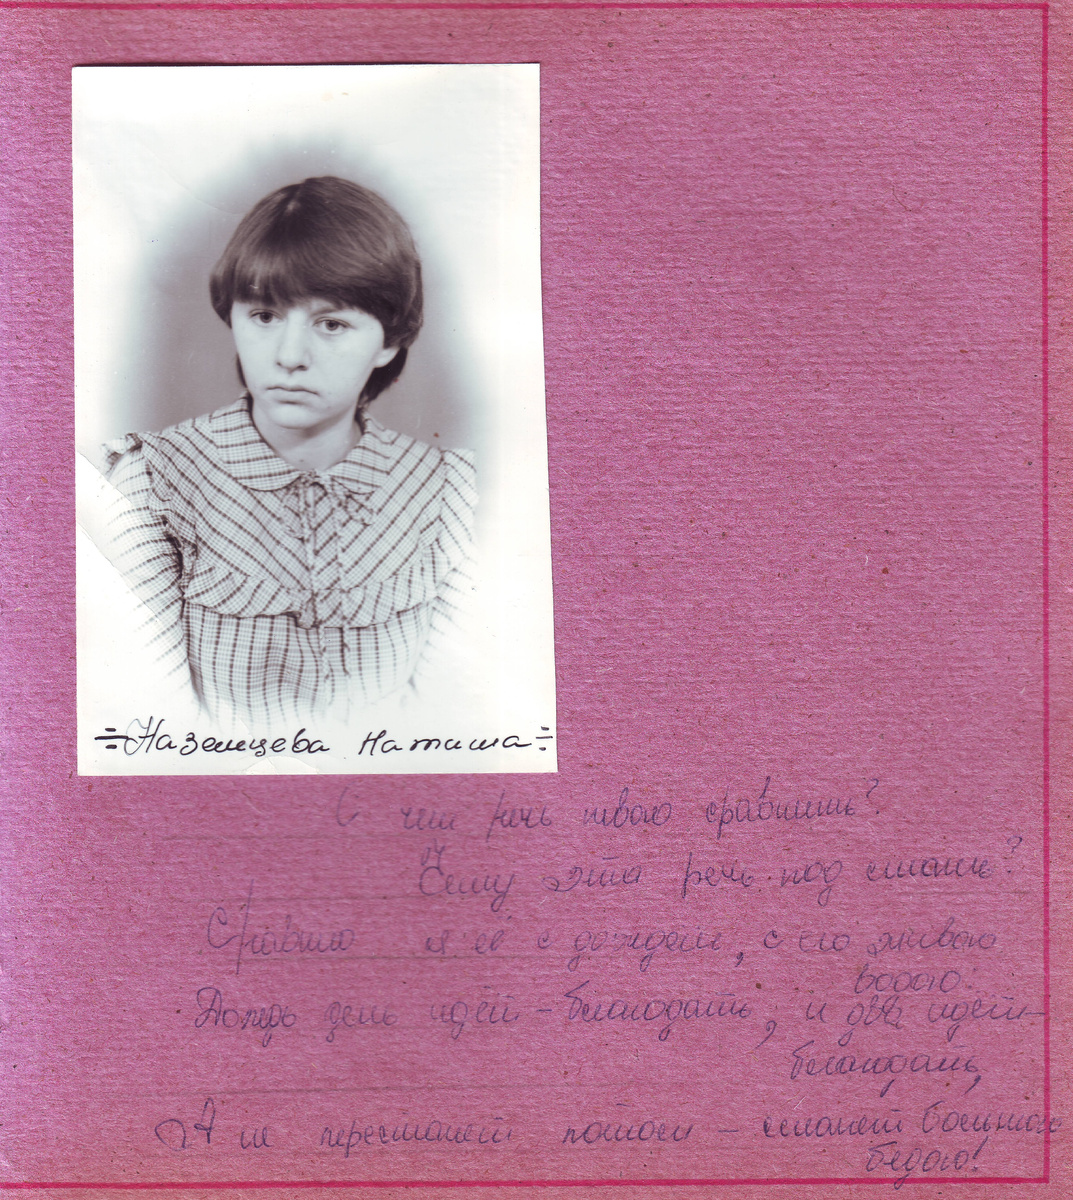 ÷Наземцева Наташа÷
С чем речь твою сравнить?
Чему эта речь под стать?
Сравню я её с дождём, с его живою
водою.
Дождь день идёт – благодать, и два идёт –
благодать,
А не перестанет потом – станет большою
бедою!